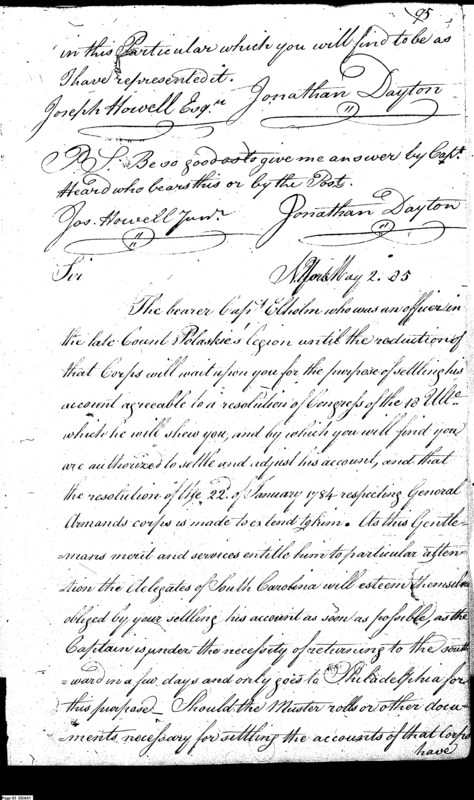 95
in this Particular which you will find to be as
I have represented it.
Joseph Howell Esqr. Jonathan Dayton
P. S. Be so good as to give me answer by Capt.
Heard who bears this or by the Post.
Jos. Howell Junr. Jonathan Dayton
Sir N. York May 2. 85
The bearer Capt. Elholm who was an officer in
the late Count Polaskie's legion until the reduction of
that Corps will wait upon you for the purpose of settling his
account agreeable to a resolution of Congress of the 13 Ulto.
which he will show you, and by which you will find you
are authorized to settle and adjust his account, and that
the resolution of the 22d. of January 1784 respecting General
Armands corps is made to extend to him. As this Gentle
=mans merit and services entitle him to particular atten-
tion the delegates of South Carolina will esteem themselves
obliged by your settling his account as soon as possible, as the
Captain is under the necessity of returning to the south
=ward in a few days and only goes to Philadelphia for
this purpose – Should the Muster rolls or other docu-
=ments necessary for settling the accounts of that Corps
have